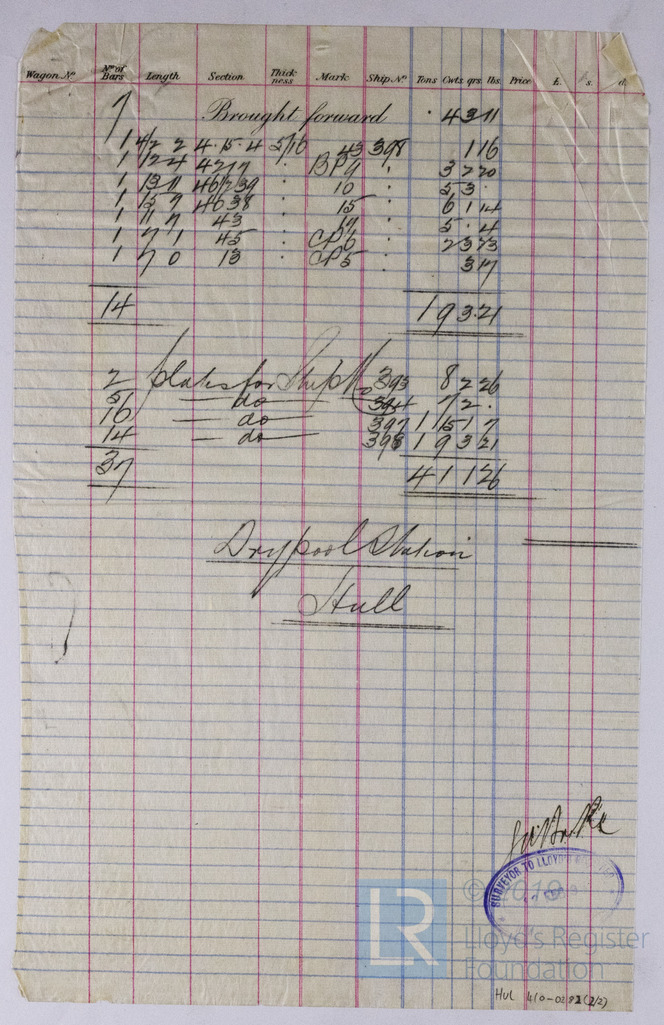 Wagon Nº Nº of Bars Length Section Thickness Mark Ship Nº Tons Cwts qrs. lbs. Price £. s. d.
7 Brought forward · 4 3 11
1 4/2 2 4·15·4 5/16 43 398 1 16
1 12 4 42 17 " BP9 " 3 2 20
1 13 11 46/2 39 " 10 " 5 3 ·
1 15 7 46 38 " 15 " 6 1 14
1 11 7 43 " 14 " 5 · 4
1 7 1 45 " CP6 " 2 3 23
1 7 0 13 " CP5 " 3 17
14 1 9 3·21
2 plates for Ship Nº 393 8 2 26
5 do 394 7 2 ·
16 do 397 1 15 1 7
14 do 398 1 9 3 21
37 4 1 1 26
Drypool Station
Hull
SURVEYOR TO LLOYD'S
© 2019
LR Lloyd's Register
Foundation
HUL 410-0282 (2/2)